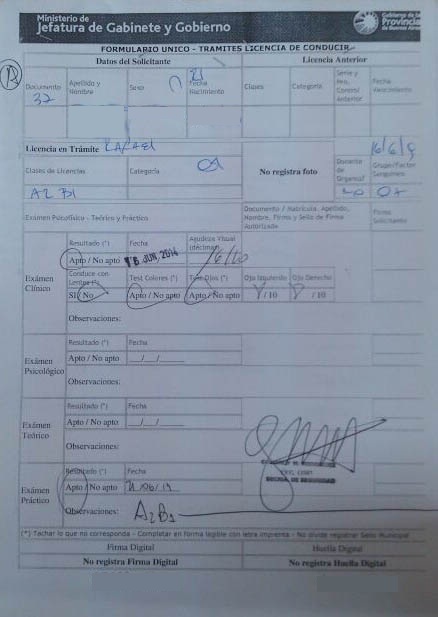 Ministerio de
Jefatura de Gabinete y Gobierno
Provincia
de Buenos Aires
FORMULARIO UNICO - TRAMITES LICENCIA DE CONDUCIR
Datos del Solicitante
Licencia Anterior
Documento
Apellido y Nombre
Sexo
Fecha Nacimiento
Clases
Categoría
Serie y Nro. Control Anterior
Fecha Vencimiento
37
21
Licencia en Trámite
RAFAEL
16/6/
Clases de Licencias
Categoría
No registra foto
Donante de Organos
Grupo/Factor Sanguineo
A2 B1
Examen Psicofísico - Teórico y Práctico
Documento / Matrícula, Apellido, Nombre, Firma y Sello de Firma Autorizada
Firma Solicitante
Examen Clínico
Resultado (*)
Fecha
Agudeza Visual (décimas)
Apto / No apto
16 JUN. 2014
/10
Conduce con Lentes (*)
Test Colores (*)
Test Ojos (*)
Ojo Izquierdo
Ojo Derecho
SI / No
Apto / No apto
Apto / No apto
/ 10
/ 10
Observaciones:
Exámen Psicológico
Resultado (*)
Fecha
Apto / No apto
__/__/____
Observaciones:
Exámen Teórico
Resultado (*)
Fecha
Apto / No apto
__/__/____
Observaciones:
Exámen Práctico
Resultado (*)
Fecha
Apto / No apto
/06/14
Observaciones:
A2B1
(*) Tachar lo que no corresponda - Completar en forma legible con letra imprenta - No olvide registrar Sello Municipal
Firma Digital
Huella Digital
No registra Firma Digital
No registra Huella Digital